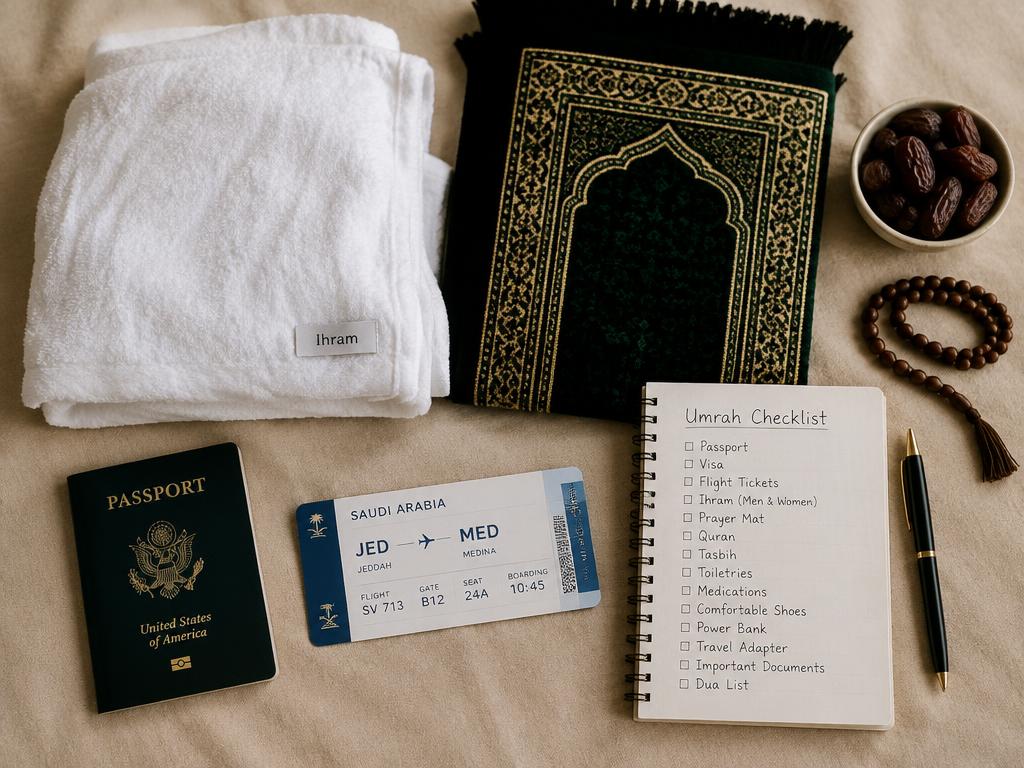 Ihram
PASSPORT
United States
of America
SAUDI ARABIA
JED MED
JEDDAH MEDINA
FLIGHT GATE SEAT BOARDING
SV 713 B12 24A 10:45
Umrah Checklist
Passport
Visa
Flight Tickets
Ihram (Men & Women)
Prayer Mat
Quran
Tasbih
Toiletries
Medications
Comfortable Shoes
Power Bank
Travel Adapter
Important Documents
Dua List